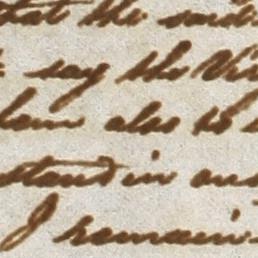 that the said
say the
also to
stand in
I remain